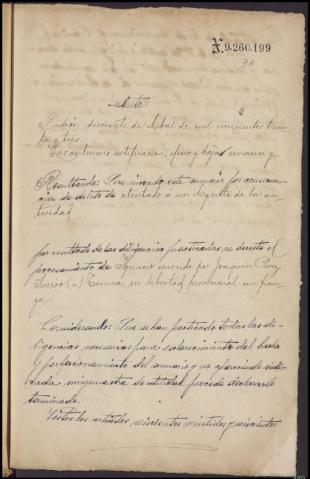 X.9.260.199
30
Auto
Padrón, diecisiete de Abril de mil novecientos trein
ta y tres
Los anteriores notificacion, oficio y hojas unanse y
Resultando: Que incoado este sumario por consecuen
cia de delito de atentado a un Agente de la au
toridad
por resultado de las diligencias practicadas, se decretó el
procesamiento de por Joaquin Perez
(a) en libertad provisional sin fian
za.
Considerando: Que se han practicado todas las di-
ligencias necesarias para esclarecimiento del hecho
y perfeccionamiento del sumario y no apareciendo indi
cada ninguna otra de utilidad procede declararle
terminado.
Vistos los articulos seiscientos veintidos y seiscientos